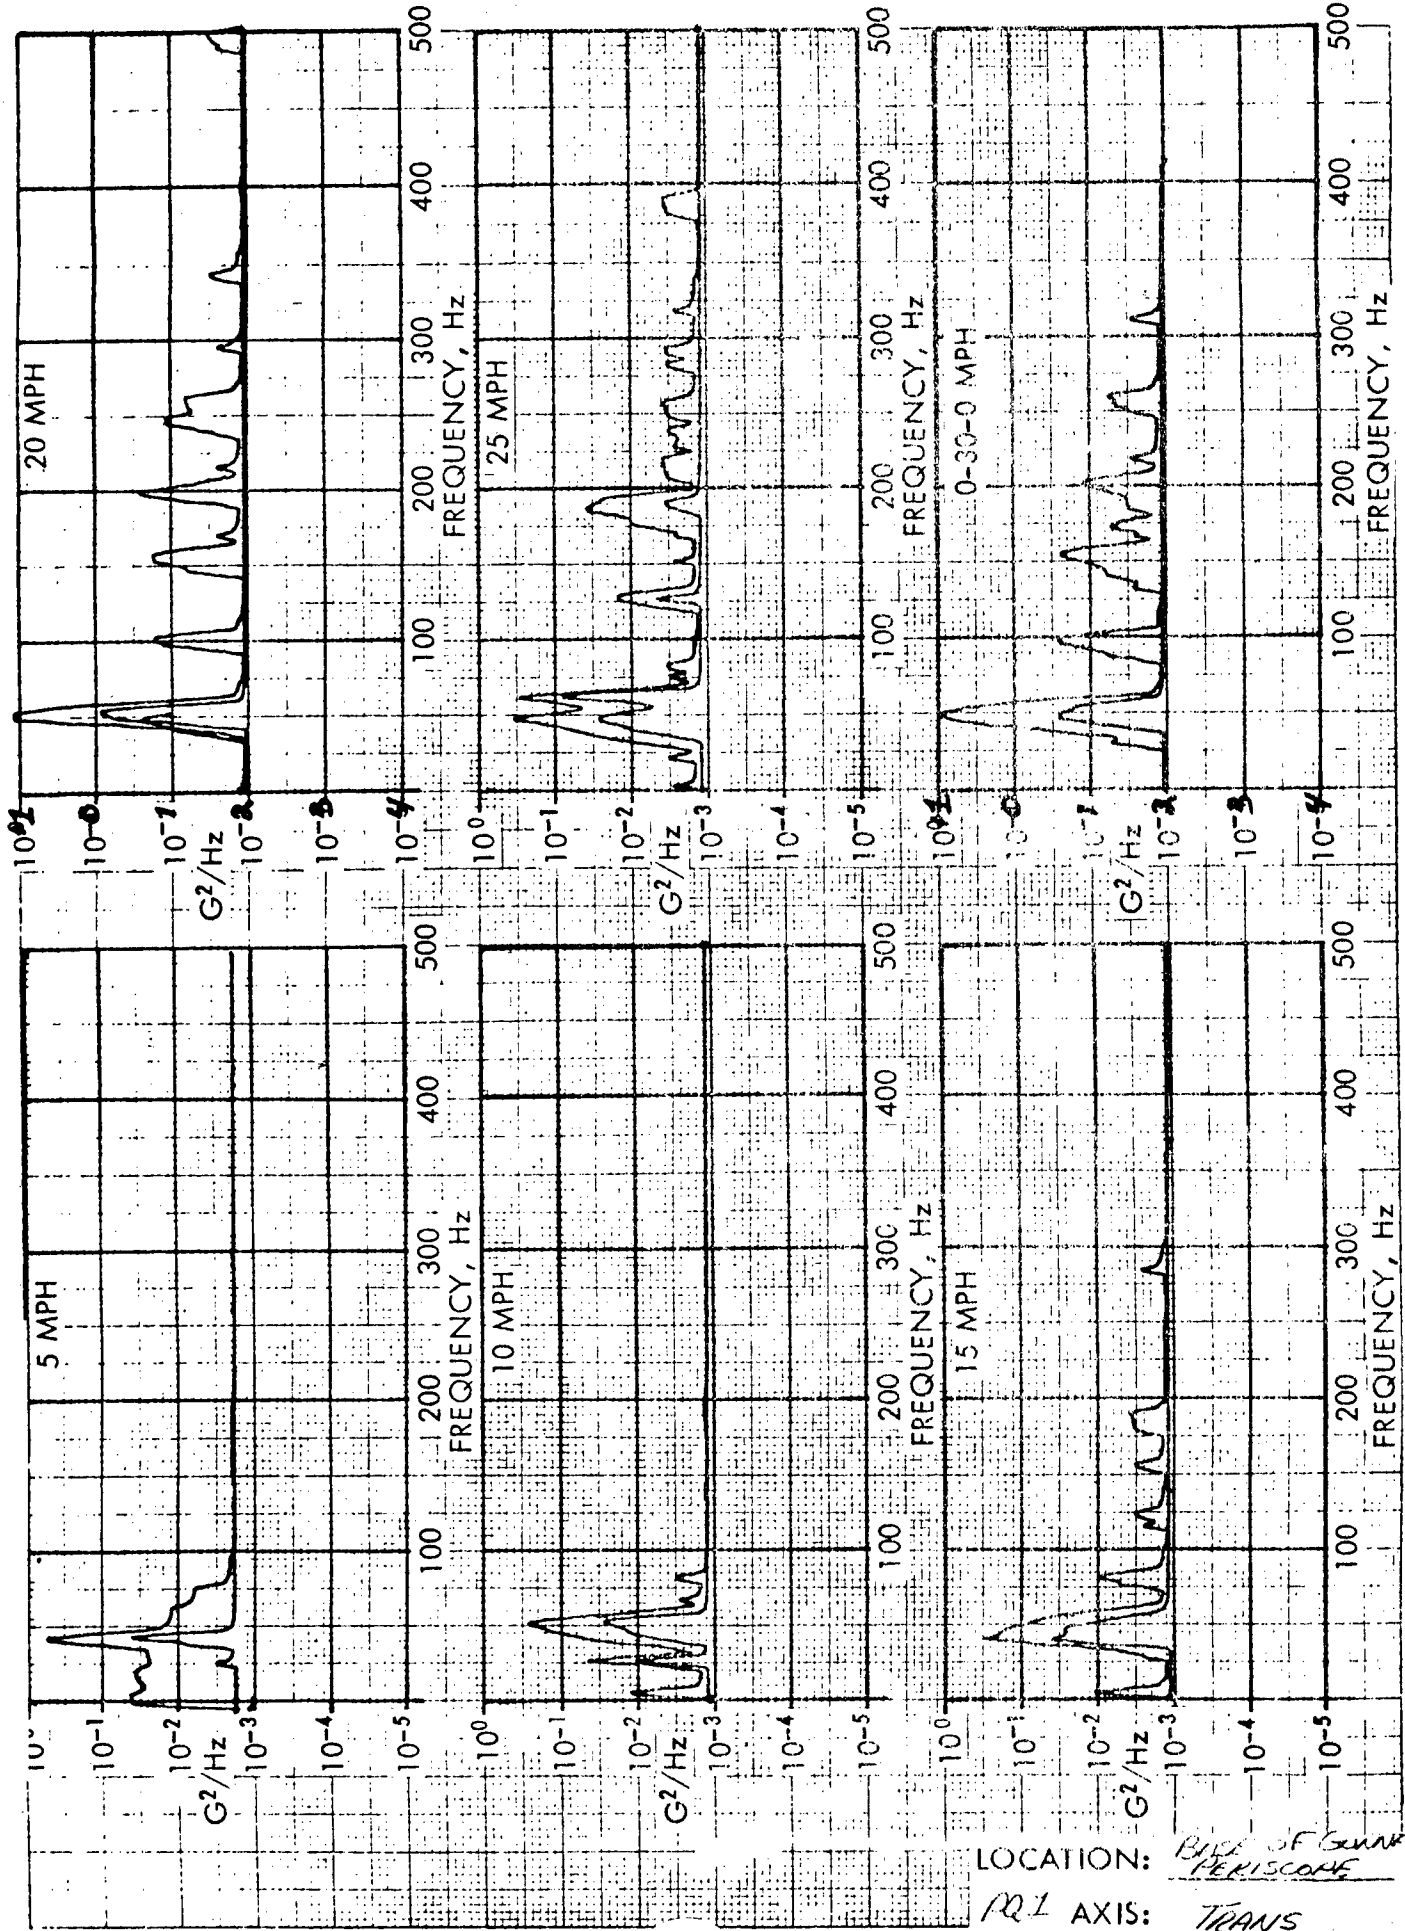 5 MPH
10⁰
10⁻¹
10⁻²
10⁻³
10⁻⁴
10⁻⁵
G²/Hz
100
200
300
400
500
FREQUENCY, Hz
10 MPH
10⁰
10⁻¹
10⁻²
10⁻³
10⁻⁴
10⁻⁵
G²/Hz
100
200
300
400
500
FREQUENCY, Hz
15 MPH
10⁰
10⁻¹
10⁻²
10⁻³
10⁻⁴
10⁻⁵
G²/Hz
100
200
300
400
500
FREQUENCY, Hz
20 MPH
10⁻¹
10⁻²
10⁻³
10⁻⁴
G²/Hz
100
200
300
400
500
FREQUENCY, Hz
25 MPH
10⁰
10⁻¹
10⁻²
10⁻³
10⁻⁴
10⁻⁵
G²/Hz
100
200
300
400
500
FREQUENCY, Hz
0-30-0 MPH
10⁻¹
10⁻²
10⁻³
10⁻⁴
G²/Hz
100
200
300
400
500
FREQUENCY, Hz
LOCATION: BASE OF
PERISCOPE
AXIS: TRANS